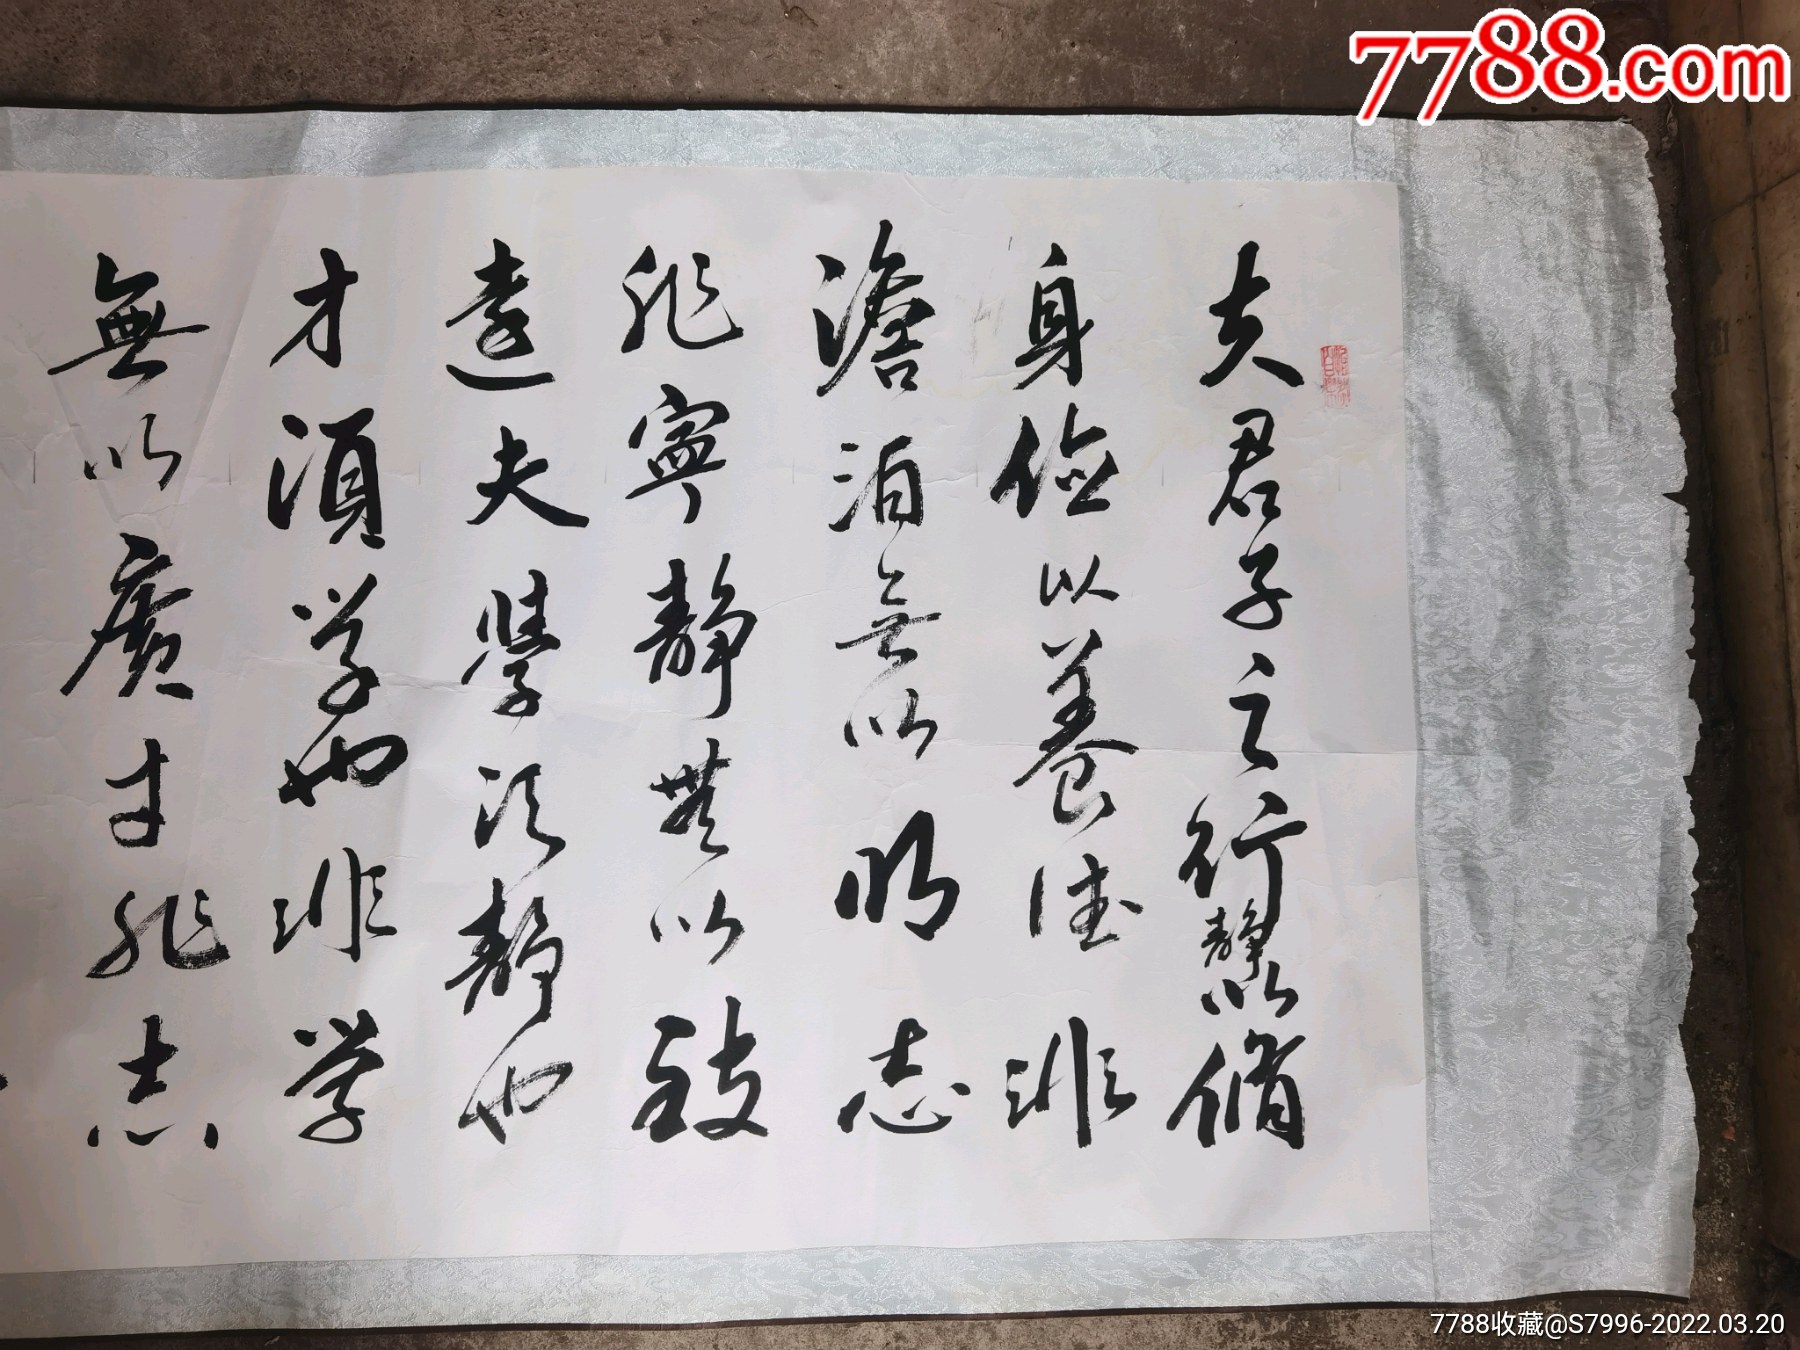 7788.com
夫君子之行靜以脩
身儉以養德非
澹泊無以明志
非寧靜無以致
遠夫學須靜也
才須学也非学
無以廣才非志
7788收藏@S7996-2022.03.20